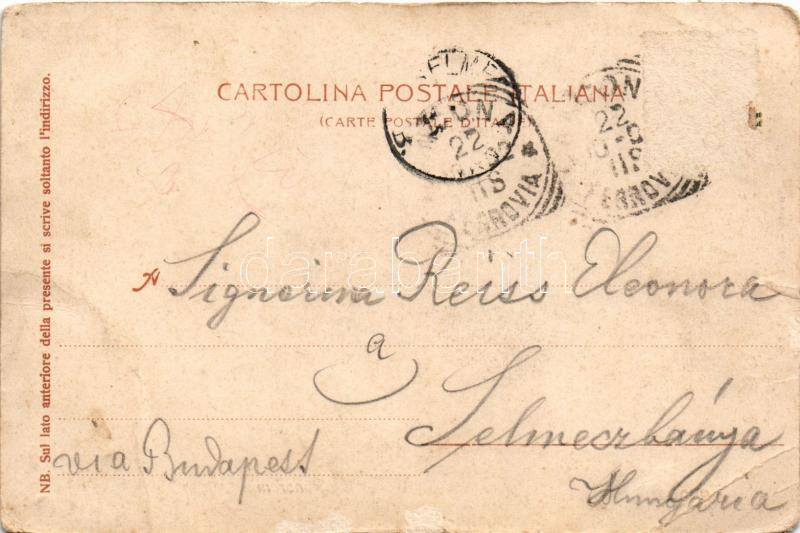 CARTOLINA POSTALE ITALIANA
(CARTE POSTALE D'ITALIE)
SELME
22
FERROVIA
22
FERROV
NB. Sul lato anteriore della presente si scrive soltanto l'indirizzo.
A Signorina Reiss Eleonora
a
Selmeczbánya
via Budapest
Hungaria
darabanth